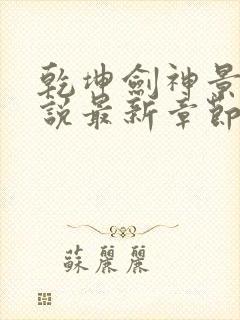 乾坤劍神景
說最新章節
蘇麗麗